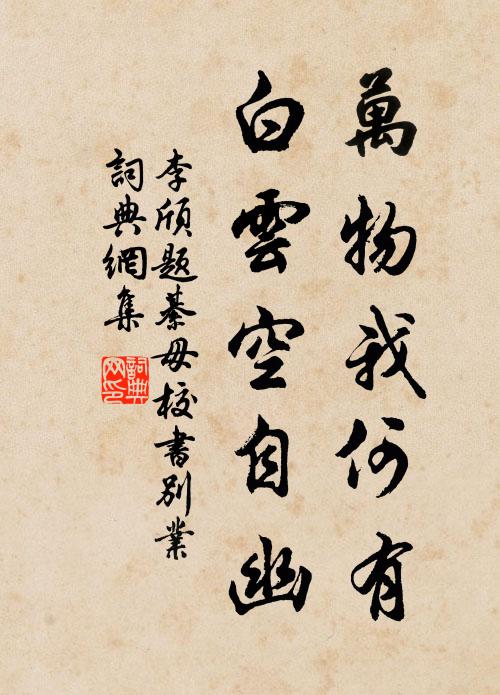 萬物我何有
白雲空自幽
李頎題綦毋校書別業
詞典網集
詞典网印